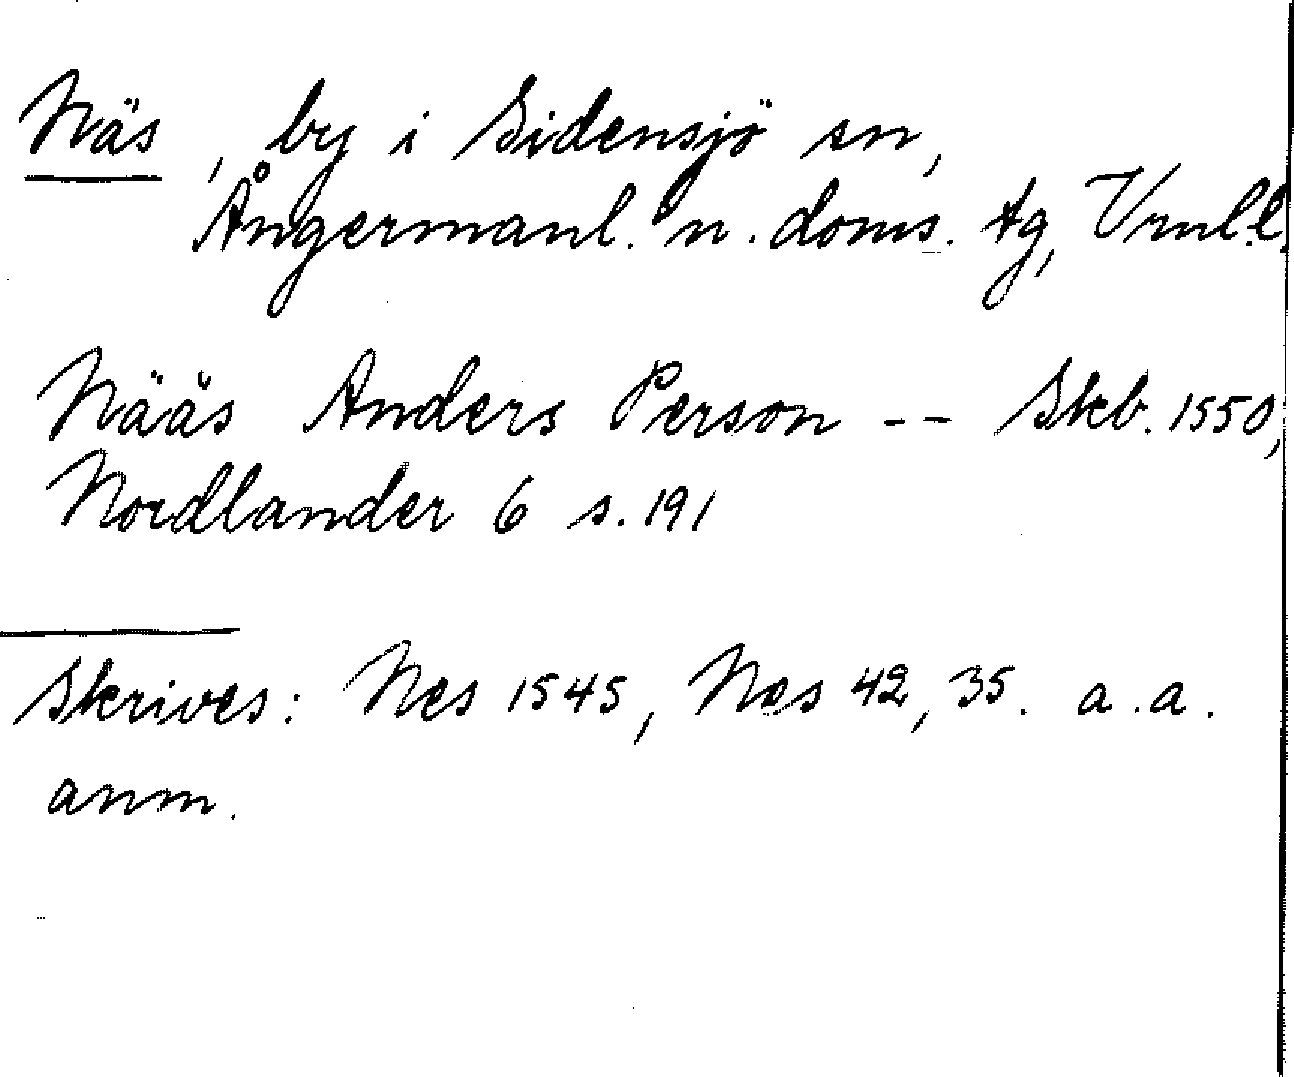 Näs, by i Sidensjö sn,
Ångermanl. n. doms. tg, Vrnl.l.
Nääs Anders Person -- Skb. 1550,
Nordlander 6 s. 191
Skrives: Nes 1545, Næs 42, 35. a.a.
anm.